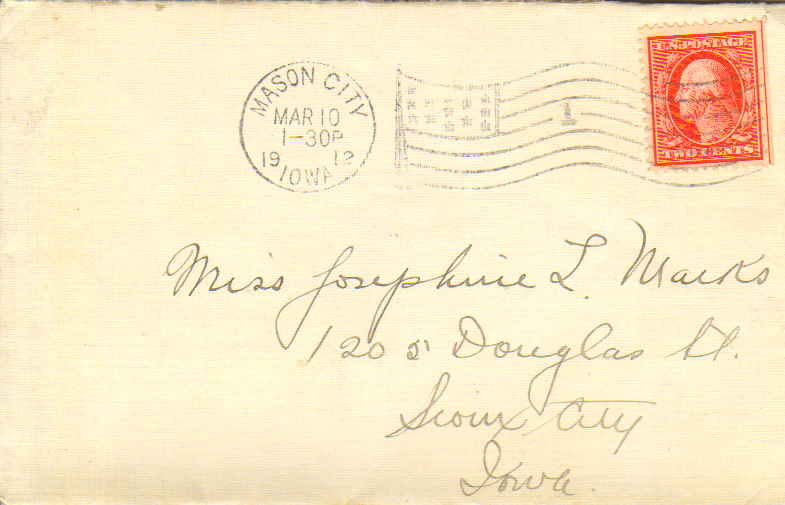 MASON CITY
MAR 10
1-30P
1912
IOWA
1
U.S. POSTAGE
TWO CENTS
Miss Josephine L. Marks
1205 Douglas St.
Sioux City
Iowa.